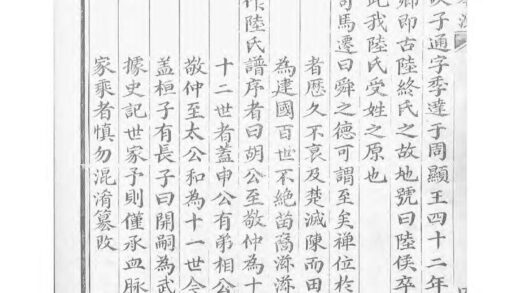 源
侯子通字季達于周顯王四十二年
卿即古陸終氏之故地號曰陸侯卒
此我陸氏受姓之原也
司馬遷曰舜之德可謂至矣禪位於
者歷久不衰及楚滅陳而田
為建國百世不絕苗裔滋滋
作陸氏譜序者曰胡公至敬仲為十
十二世者蓋申公有弟相公
敬仲至太公和為十一世今
蓋桓子有長子曰開嗣為武
據史記世家予則僅承血脈
家乘者慎勿混淆篡改